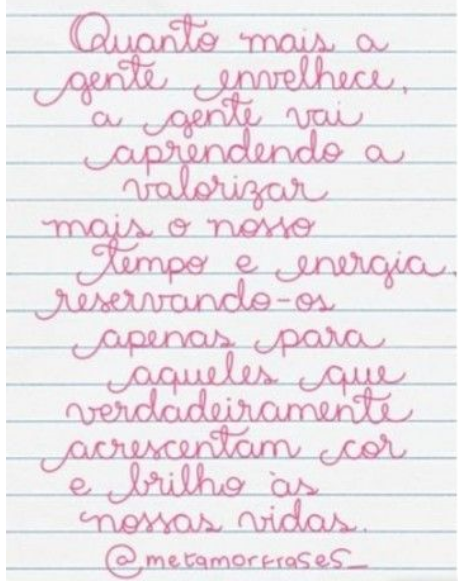 Quanto mais a
gente envelhece,
a gente vai
aprendendo a
valorizar
mais o nosso
tempo e energia,
reservando-os
apenas para
aqueles que
verdadeiramente
acrescentam cor
e brilho às
nossas vidas.
@metamorfrases_